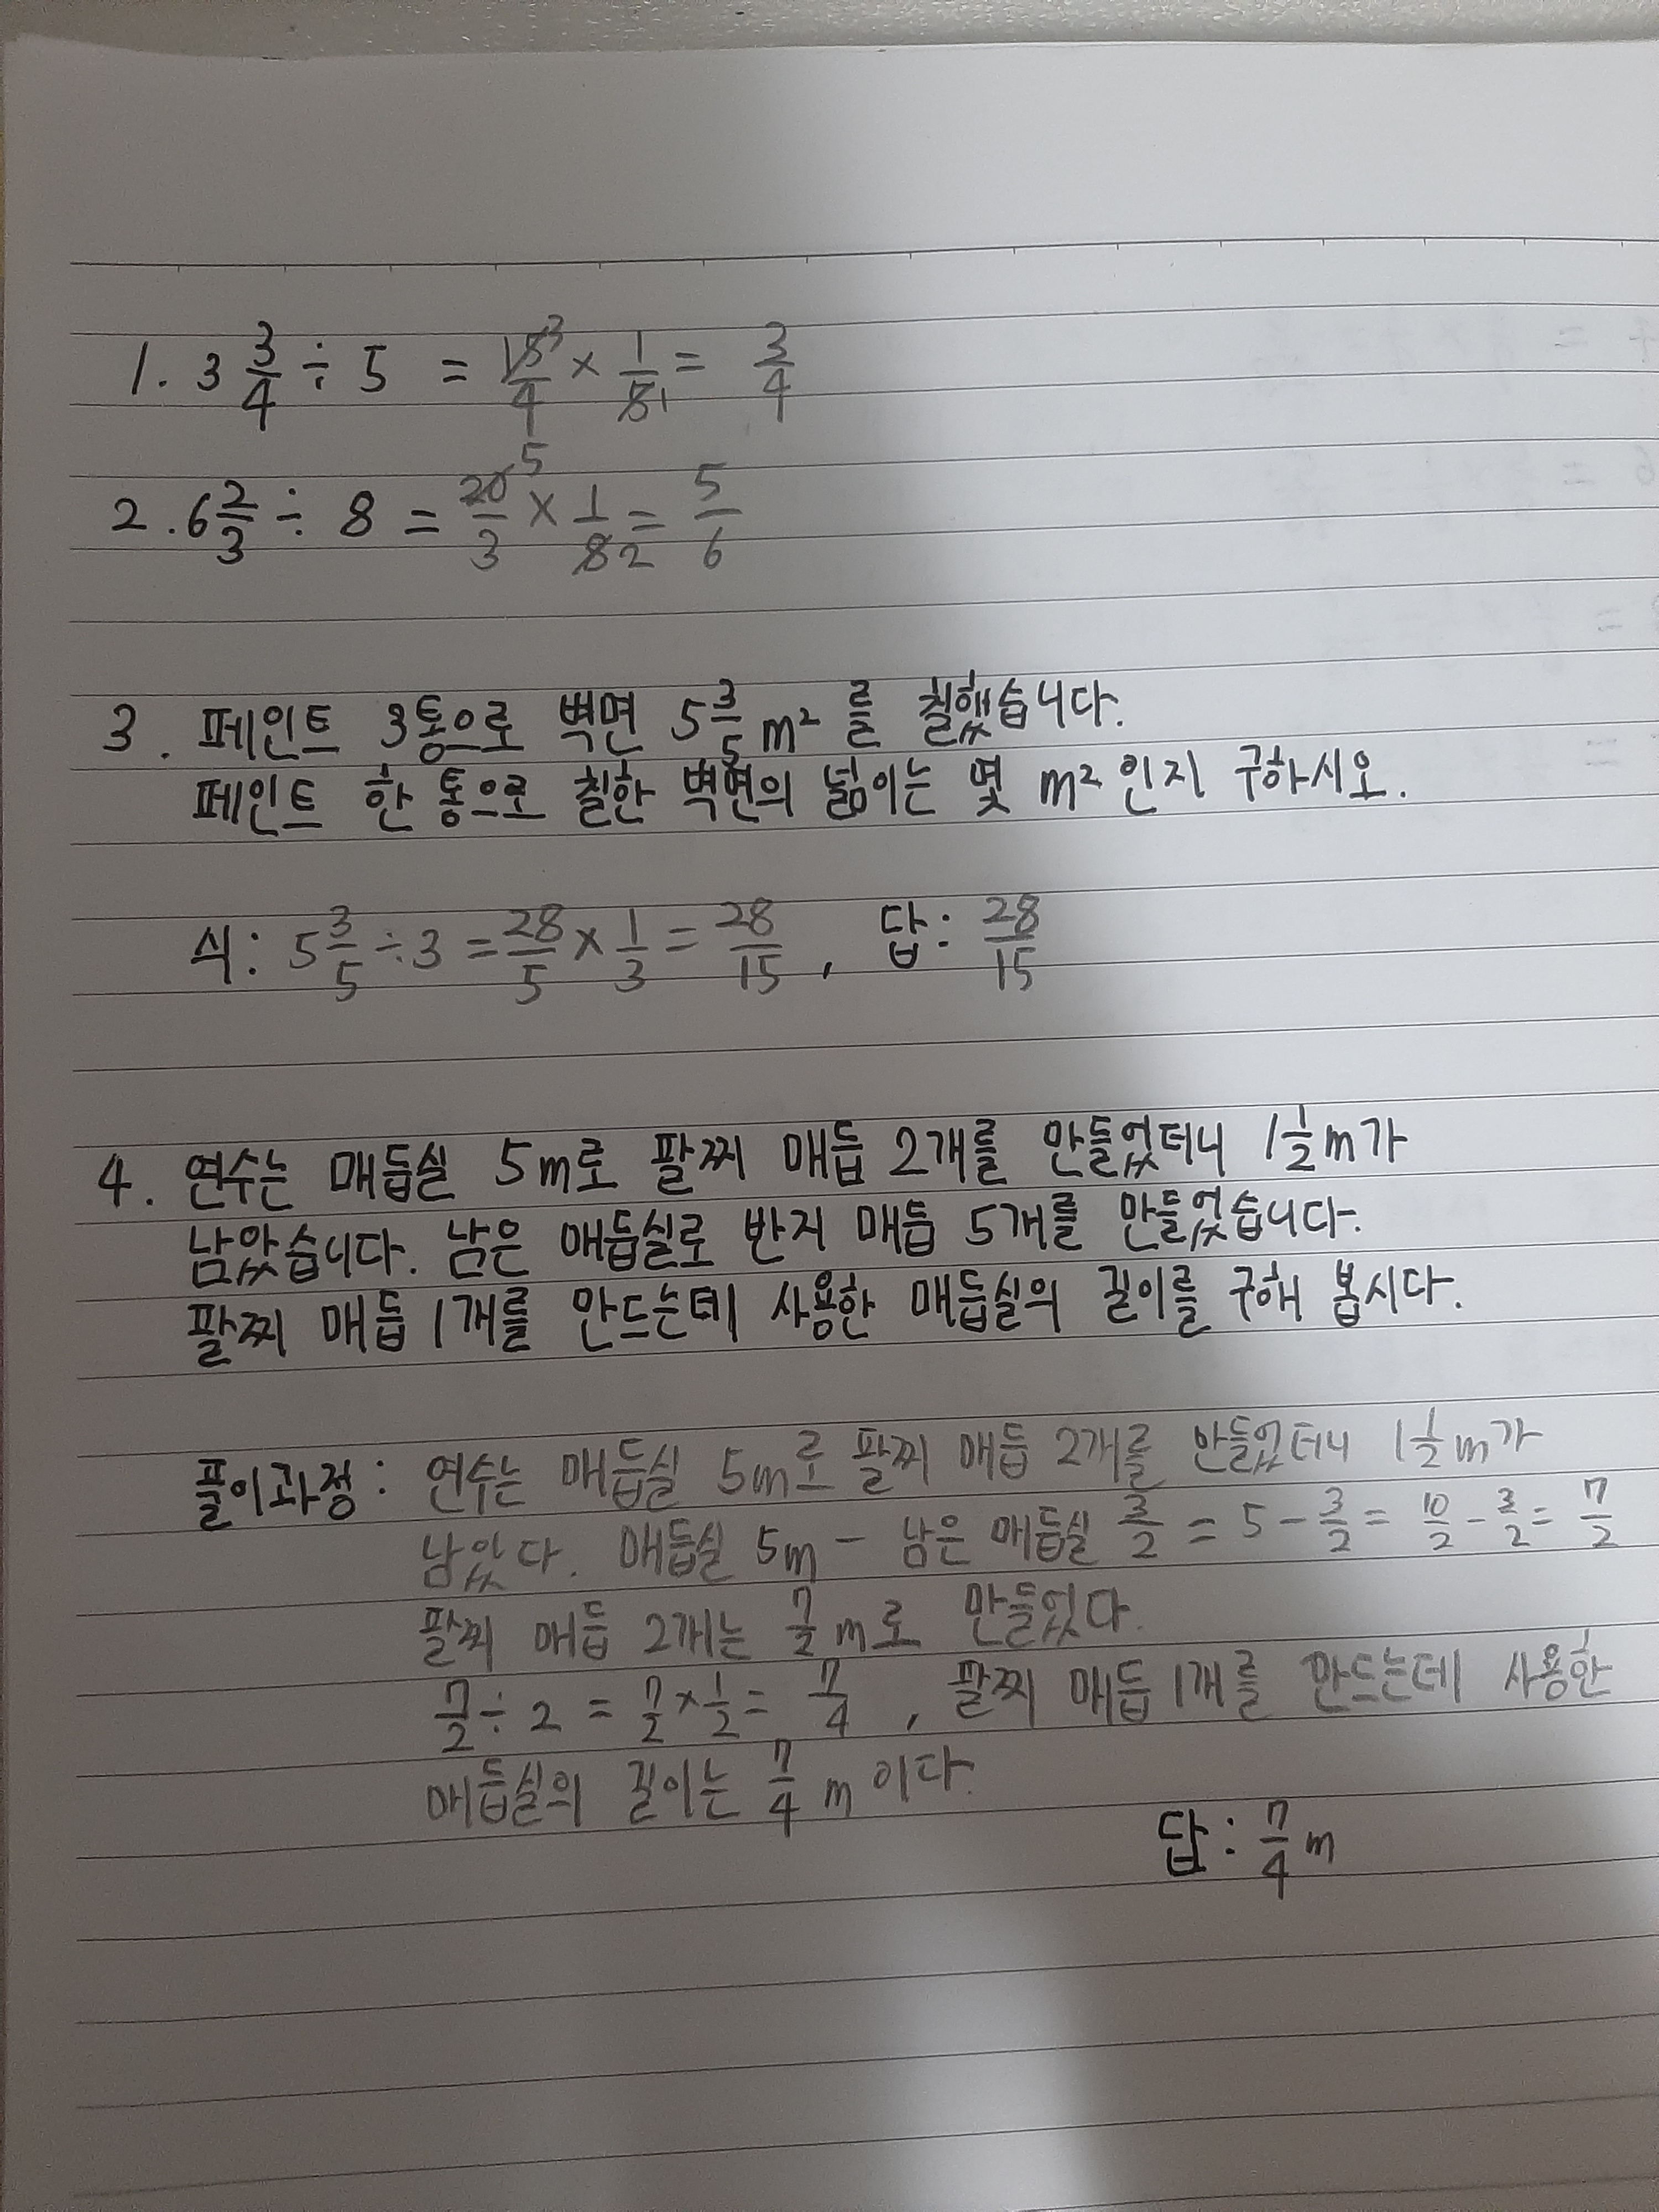 1. 3 3/4 ÷ 5 = 15/4 3 × 1/5 1 = 3/4
2. 6 2/3 ÷ 8 = 20/3 5 × 1/8 2 = 5/6
3. 페인트 3통으로 벽면 5 3/5 m² 를 칠했습니다.
페인트 한 통으로 칠한 벽면의 넓이는 몇 m² 인지 구하시오.
식: 5 3/5 ÷ 3 = 28/5 × 1/3 = 28/15 , 답: 28/15
4. 연수는 매듭실 5m로 팔찌 매듭 2개를 만들었더니 1 1/2 m가
남았습니다. 남은 매듭실로 반지 매듭 5개를 만들었습니다.
팔찌 매듭 1개를 만드는데 사용한 매듭실의 길이를 구해 봅시다.
풀이과정: 연수는 매듭실 5m로 팔찌 매듭 2개를 만들었더니 1 1/2 m가
남았다. 매듭실 5m - 남은 매듭실 3/2 = 5 - 3/2 = 10/2 - 3/2 = 7/2
팔찌 매듭 2개는 7/2 m로 만들었다.
7/2 ÷ 2 = 7/2 × 1/2 = 7/4 , 팔찌 매듭 1개를 만드는데 사용한
매듭실의 길이는 7/4 m 이다.
답: 7/4 m